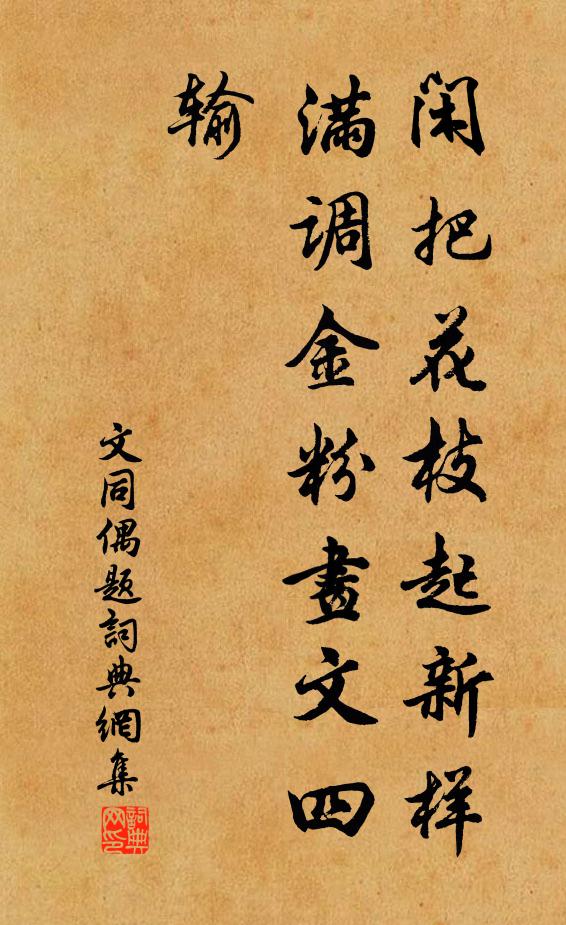 闲把花枝起新样
满调金粉畫文四
输
文同偶题詞典網集
詞典网印